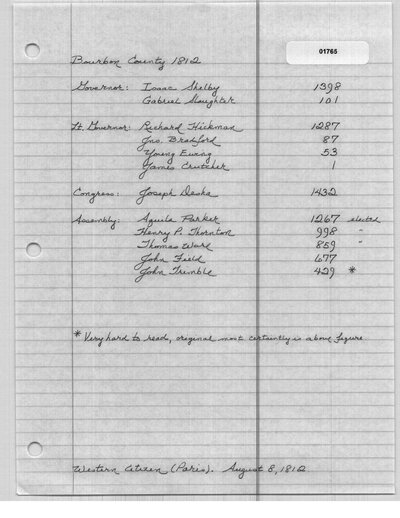 01765
Bourbon County 1812
Governor: Isaac Shelby 1398
Gabriel Slaughter 101
Lt. Governor: Richard Hickman 1287
Jno. Bradford 87
Young Ewing 53
James Crutcher 1
Congress: Joseph Desha 1432
Assembly: Aquila Parker 1267 elected
Henry P. Thornton 998 "
Thomas Ward 859 "
John Field 677
John Trimble 429 *
* Very hard to read, original most certainly is above figure.
Western Citizen (Paris). August 8, 1812